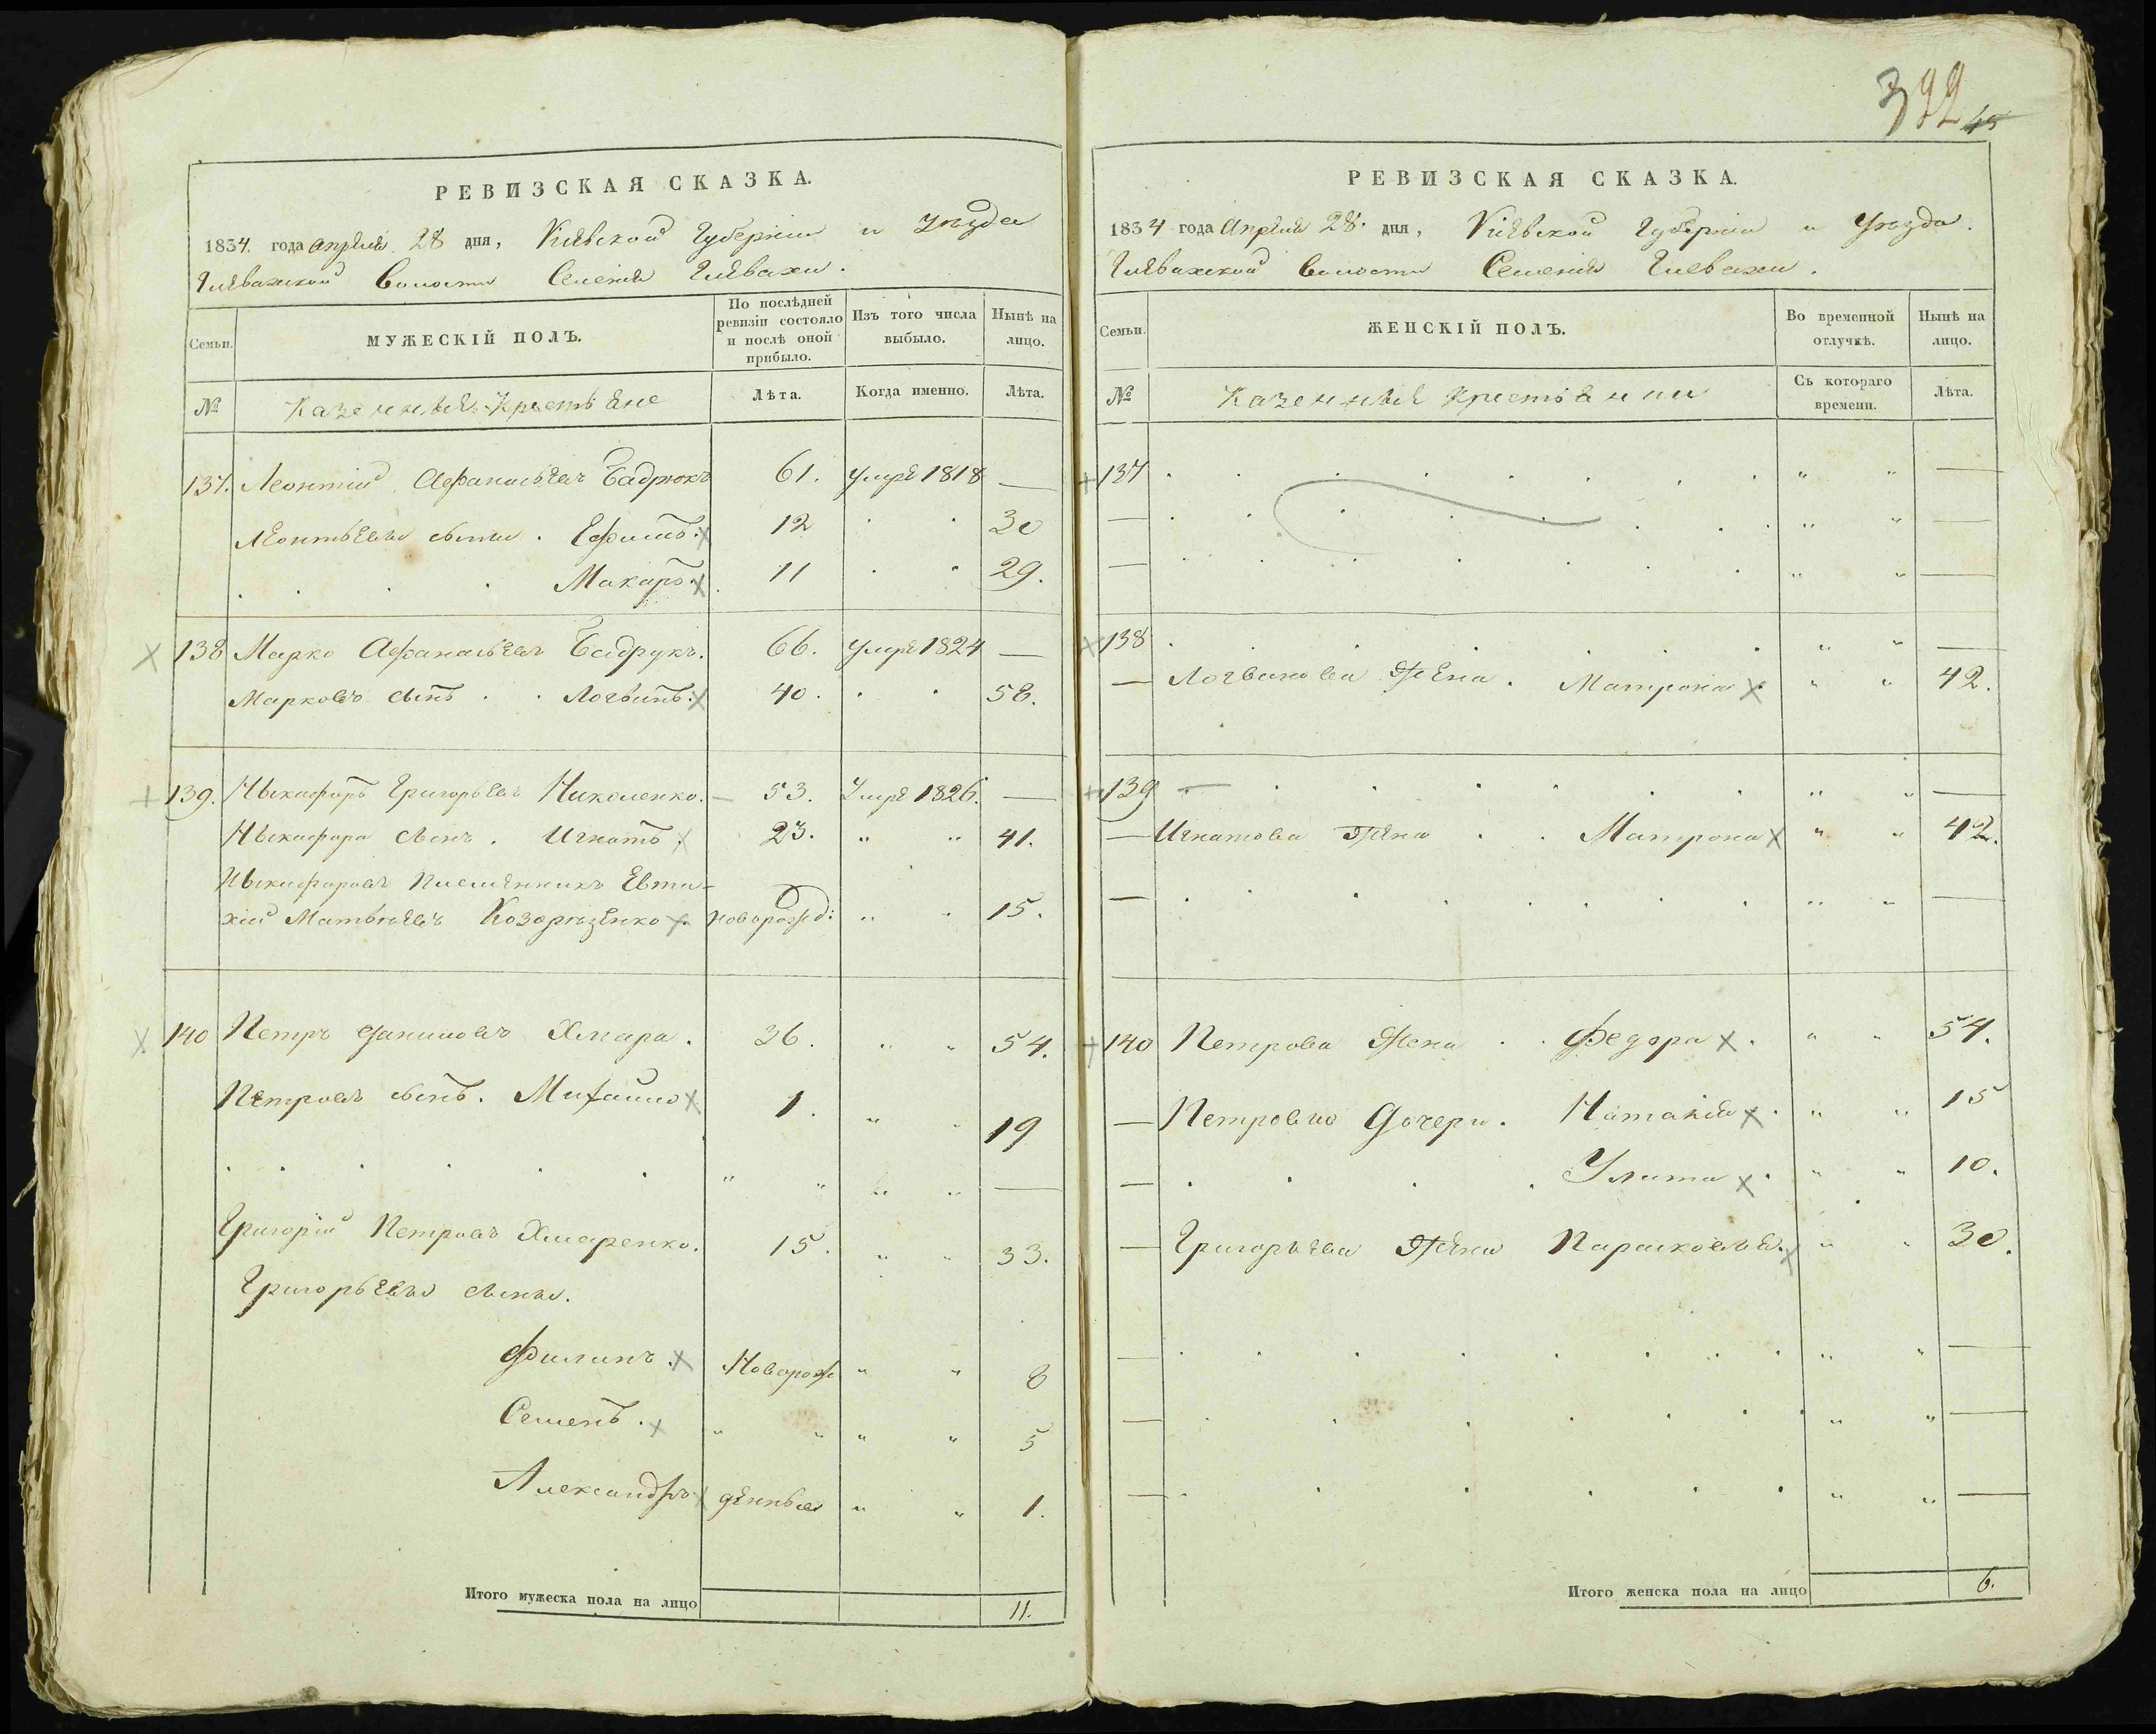 РЕВИЗСКАЯ СКАЗКА.
1834. года Апреля 28 дня, Киевской Губернии и Уезда
Глевахской Волости Селения Глевахи.
Семьи.
МУЖЕСКІЙ ПОЛЪ.
По послѣдней ревизіи состояло и послѣ оной прибыло.
Изъ того числа выбыло.
Нынѣ на лицо.
№
Казенные Крестьяне
Лѣта.
Когда именно.
Лѣта.
137. Леонтий Афанасьевъ Бадрюкъ 61. Умре 1818 —
Леонтьевы сыны . Ефимъ. 12 30
Макаръ. 11 29.
138 Марко Афанасьевъ Бадрукъ. 66. Умре 1824 —
Марковъ сынъ . . Логвинъ. 40. 58.
139. Ныкифоръ Григорьевъ Николенко. 53. Умре 1826. —
Ныкифора сынъ . Игнатъ. 23. " " 41.
Ныкифоровъ Племенникъ Евти-
хий Матвѣевъ Козарѣзенко новорожд: " " 15.
140 Петръ Даниловъ Хмара. 36. " " 54.
Петровъ сынъ. Михайло 1. " " 19
" " " " —
Григорий Петровъ Хмаренко. 15. " " 33.
Григорьевы сыны.
Филипъ. Новорож " " 8
Семенъ. " " " " 5
Александръ денные " " 1.
Итого мужеска пола на лицо 11.
392
45
РЕВИЗСКАЯ СКАЗКА.
1834 года Апреля 28. дня, Киевской Губернии и Уезда.
Глевахской Волости Селения Глевахи.
Семьи.
ЖЕНСКІЙ ПОЛЪ.
Во временной отлучкѣ.
Нынѣ на лицо.
№
Казенные Крестьянки
Съ котораго времени.
Лѣта.
137 " " —
— " " —
— " " —
138 " " —
— Логвинова Жена. Матрона " " 42.
139 — " " —
— Игнатова Жена . . Матрона " " 42.
— " " —
140 Петрова Жена . . Федора . " " 54.
— Петровы Дочери. Наталия . " " 15
— Улита . " " 10.
— Григорьева Жена Парасковия. " " 30.
— " " —
— " " —
— " " —
Итого женска пола на лицо 6.